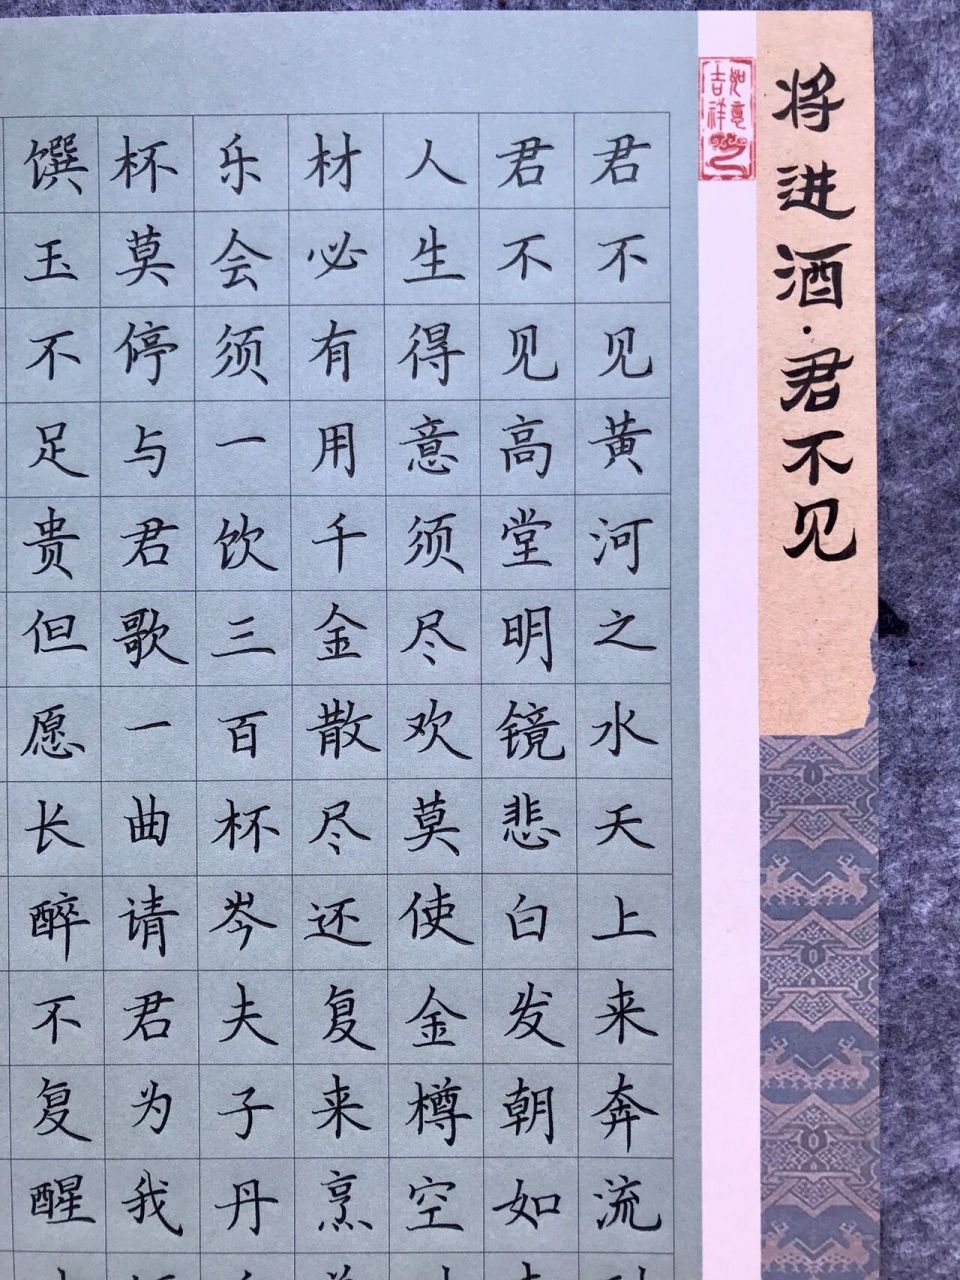 将进酒·君不见
吉祥如意
君不见黄河之水天上来奔流
君不见高堂明镜悲白发朝如
人生得意须尽欢莫使金樽空
材必有用千金散尽还复来烹
乐会须一饮三百杯岑夫子丹
杯莫停与君歌一曲请君为我
馔玉不足贵但愿长醉不复醒